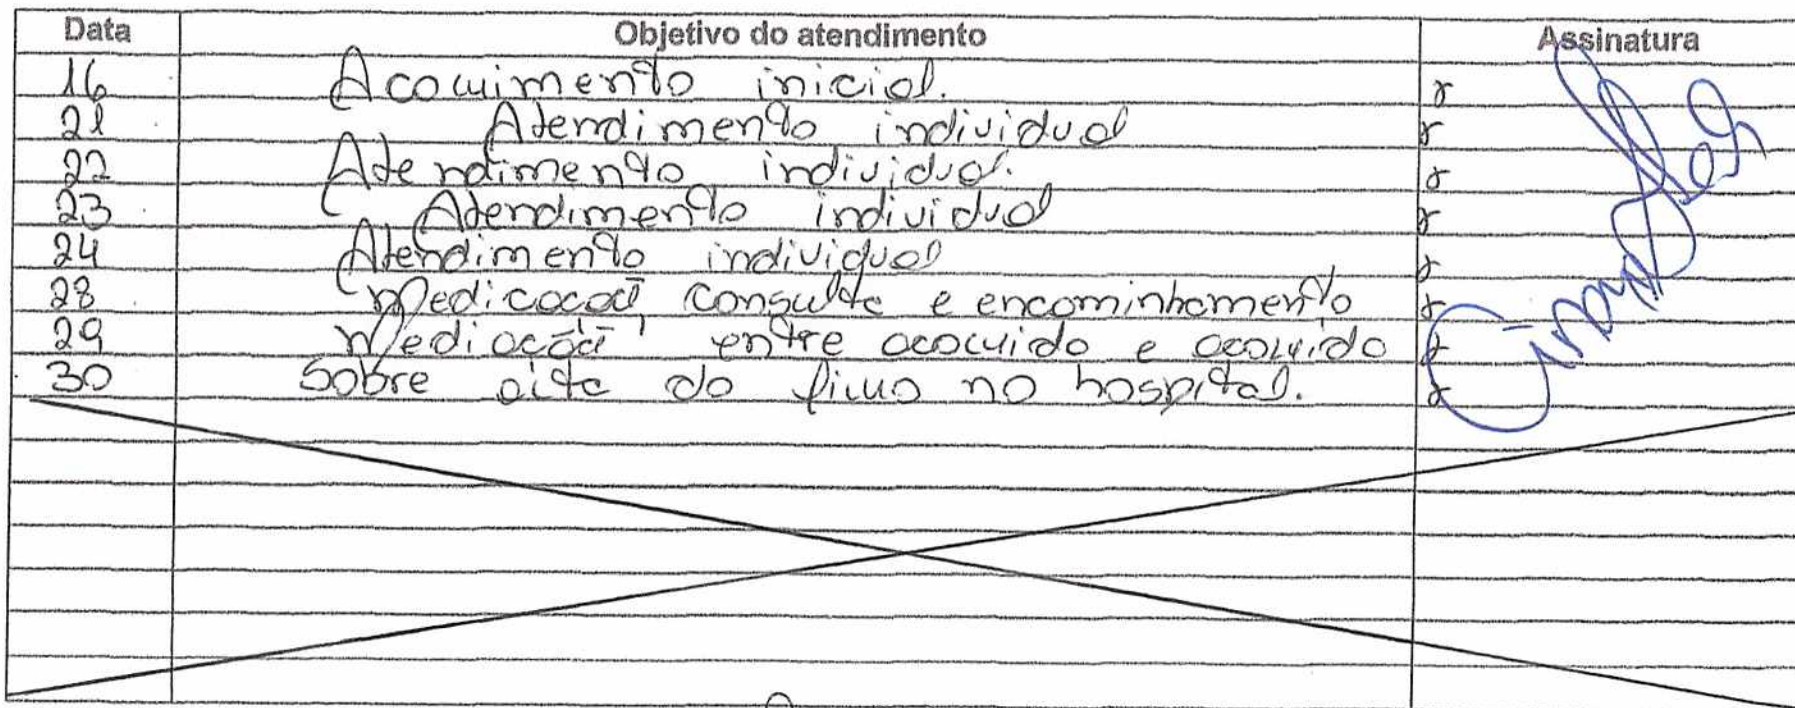 Data Objetivo do atendimento Assinatura
16 Acolhimento inicial.
21 Atendimento individual
22 Atendimento individual.
23 Atendimento individual
24 Atendimento individual
28 Medicação, consulta e encaminhamento
29 Mediação entre acolhido e acolhido
30 Sobre alta do filho no hospital.